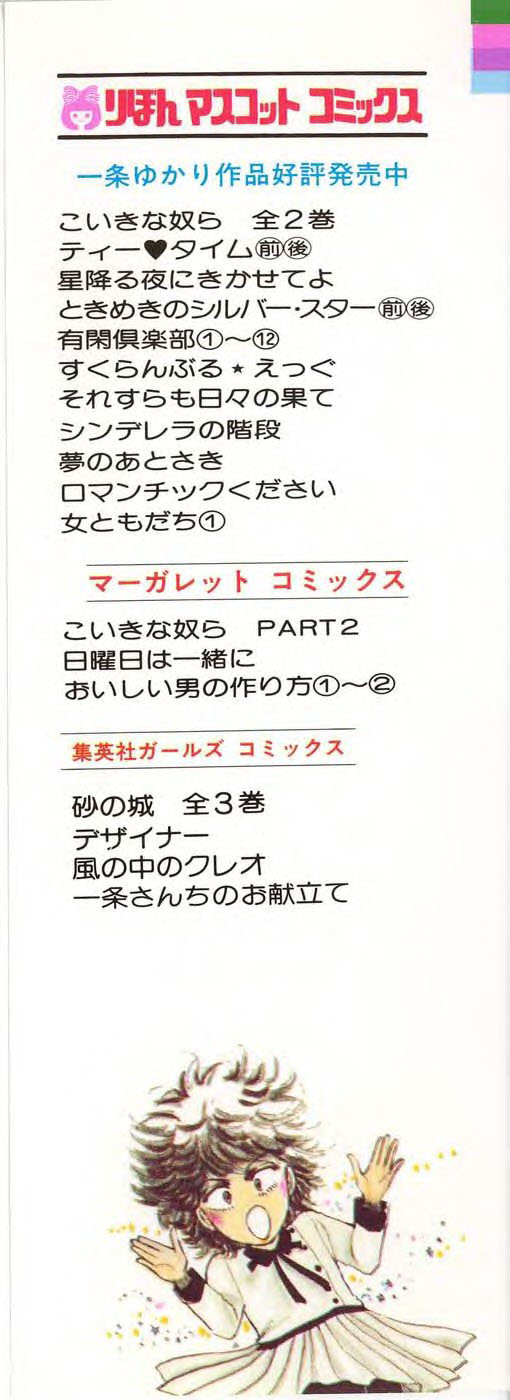 りぼん マスコット コミックス
一条ゆかり作品好評発売中
こいきな奴ら 全2巻
ティー♥タイム㊤㊦
星降る夜にきかせてよ
ときめきのシルバー・スター前後
有閑倶楽部①〜⑫
すくらんぶる★えっぐ
それすらも日々の果て
シンデレラの階段
夢のあとさき
ロマンチックください
女ともだち①
マーガレット コミックス
こいきな奴ら PART2
日曜日は一緒に
おいしい男の作り方①〜②
集英社ガールズ コミックス
砂の城 全3巻
デザイナー
風の中のクレオ
一条さんちのお献立て